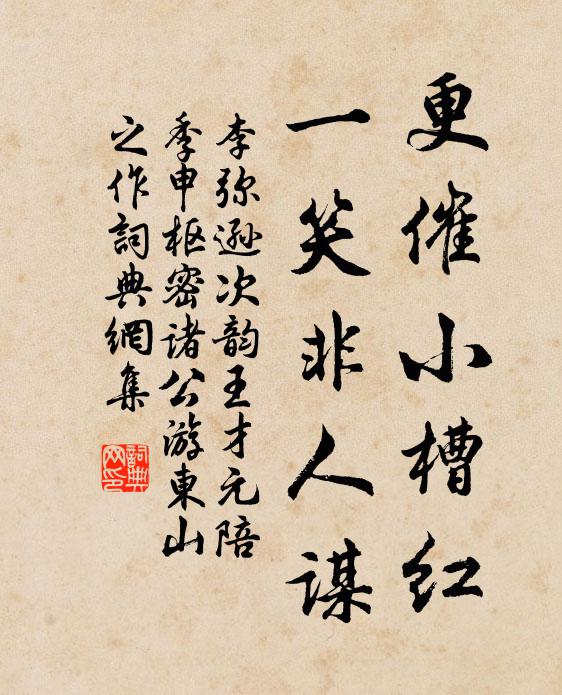 更催小槽红
一笑非人谋
李弥逊次韵王才元陪
季申枢密诸公游東山
之作詞典網集
詞典
网印